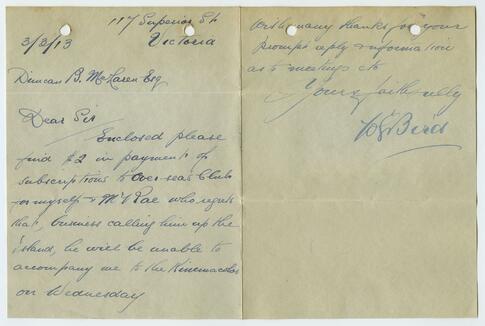 117 Superior St
Victoria
3/3/13
Duncan B. McLaren Esq
Dear Sir
Enclosed please
find $2 in payment of
subscriptions to Over-seas Club
for myself & Mr Rae who regrets
that, business calling him up the
island, he will be unable to
accompany me to the Kinemacolor
on Wednesday
With many thanks for your
prompt reply & information
as to meetings etc
Yours faithfully
Bird